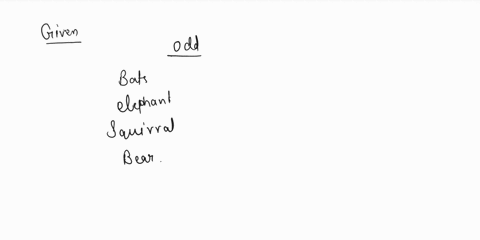 Given
Odd
Bats
elephant
Squirral
Bear.